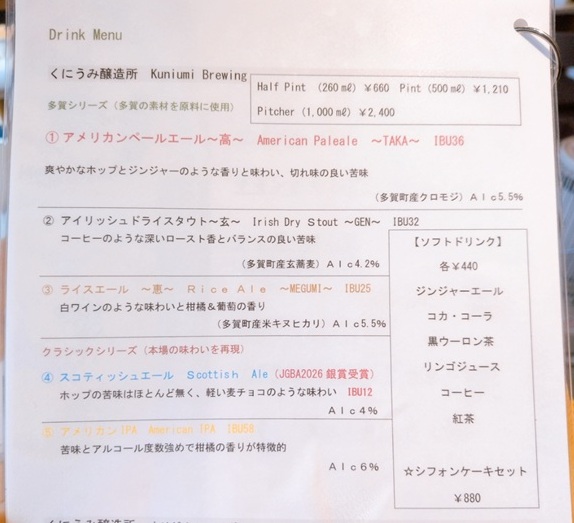 Drink Menu
くにうみ醸造所 Kuniumi Brewing
Half Pint (260㎖) ¥660 Pint(500㎖) ¥1,210
Pitcher(1,000㎖) ¥2,400
多賀シリーズ（多賀の素材を原料に使用）
①アメリカンペールエール～高～ American Paleale ～TAKA～ IBU36
爽やかなホップとジンジャーのような香りと味わい、切れ味の良い苦味
（多賀町産クロモジ）Alc5.5%
②アイリッシュドライスタウト～玄～ Irish Dry Stout ～GEN～ IBU32
コーヒーのような深いロースト香とバランスの良い苦味
（多賀町産玄蕎麦）Alc4.2%
③ライスエール ～恵～ Rice Ale ～MEGUMI～ IBU25
白ワインのような味わいと柑橘＆葡萄の香り
（多賀町産米キヌヒカリ）Alc5.5%
クラシックシリーズ（本場の味わいを再現）
④スコティッシュエール Scottish Ale（JGBA2026銀賞受賞）
ホップの苦味はほとんど無く、軽い麦チョコのような味わい IBU12
Alc4%
⑤アメリカンIPA American IPA IBU58
苦味とアルコール度数強めで柑橘の香りが特徴的
Alc6%
【ソフトドリンク】
各¥440
ジンジャーエール
コカ・コーラ
黒ウーロン茶
リンゴジュース
コーヒー
紅茶
☆シフォンケーキセット
¥880